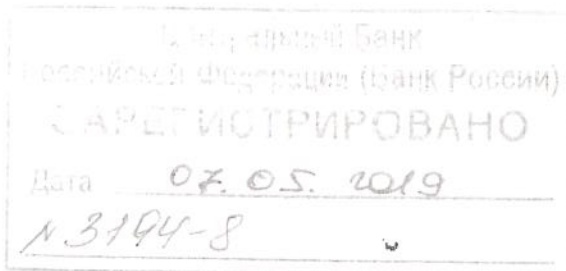 Центральный Банк
Российской Федерации (Банк России)
ЗАРЕГИСТРИРОВАНО
Дата 07.05.2019
№3194-8